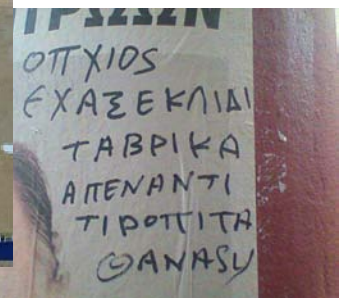 ΤΡΩΩΝ
ΟΠΧΙΟS
ΕΧΑΣΕΚΛΙΔΙ
ΤΑΒΡΙΚΑ
ΑΠΕΝΑΝΤΙ
ΤΙΡΟΠΙΤΑ
ΘΑΝΑSY